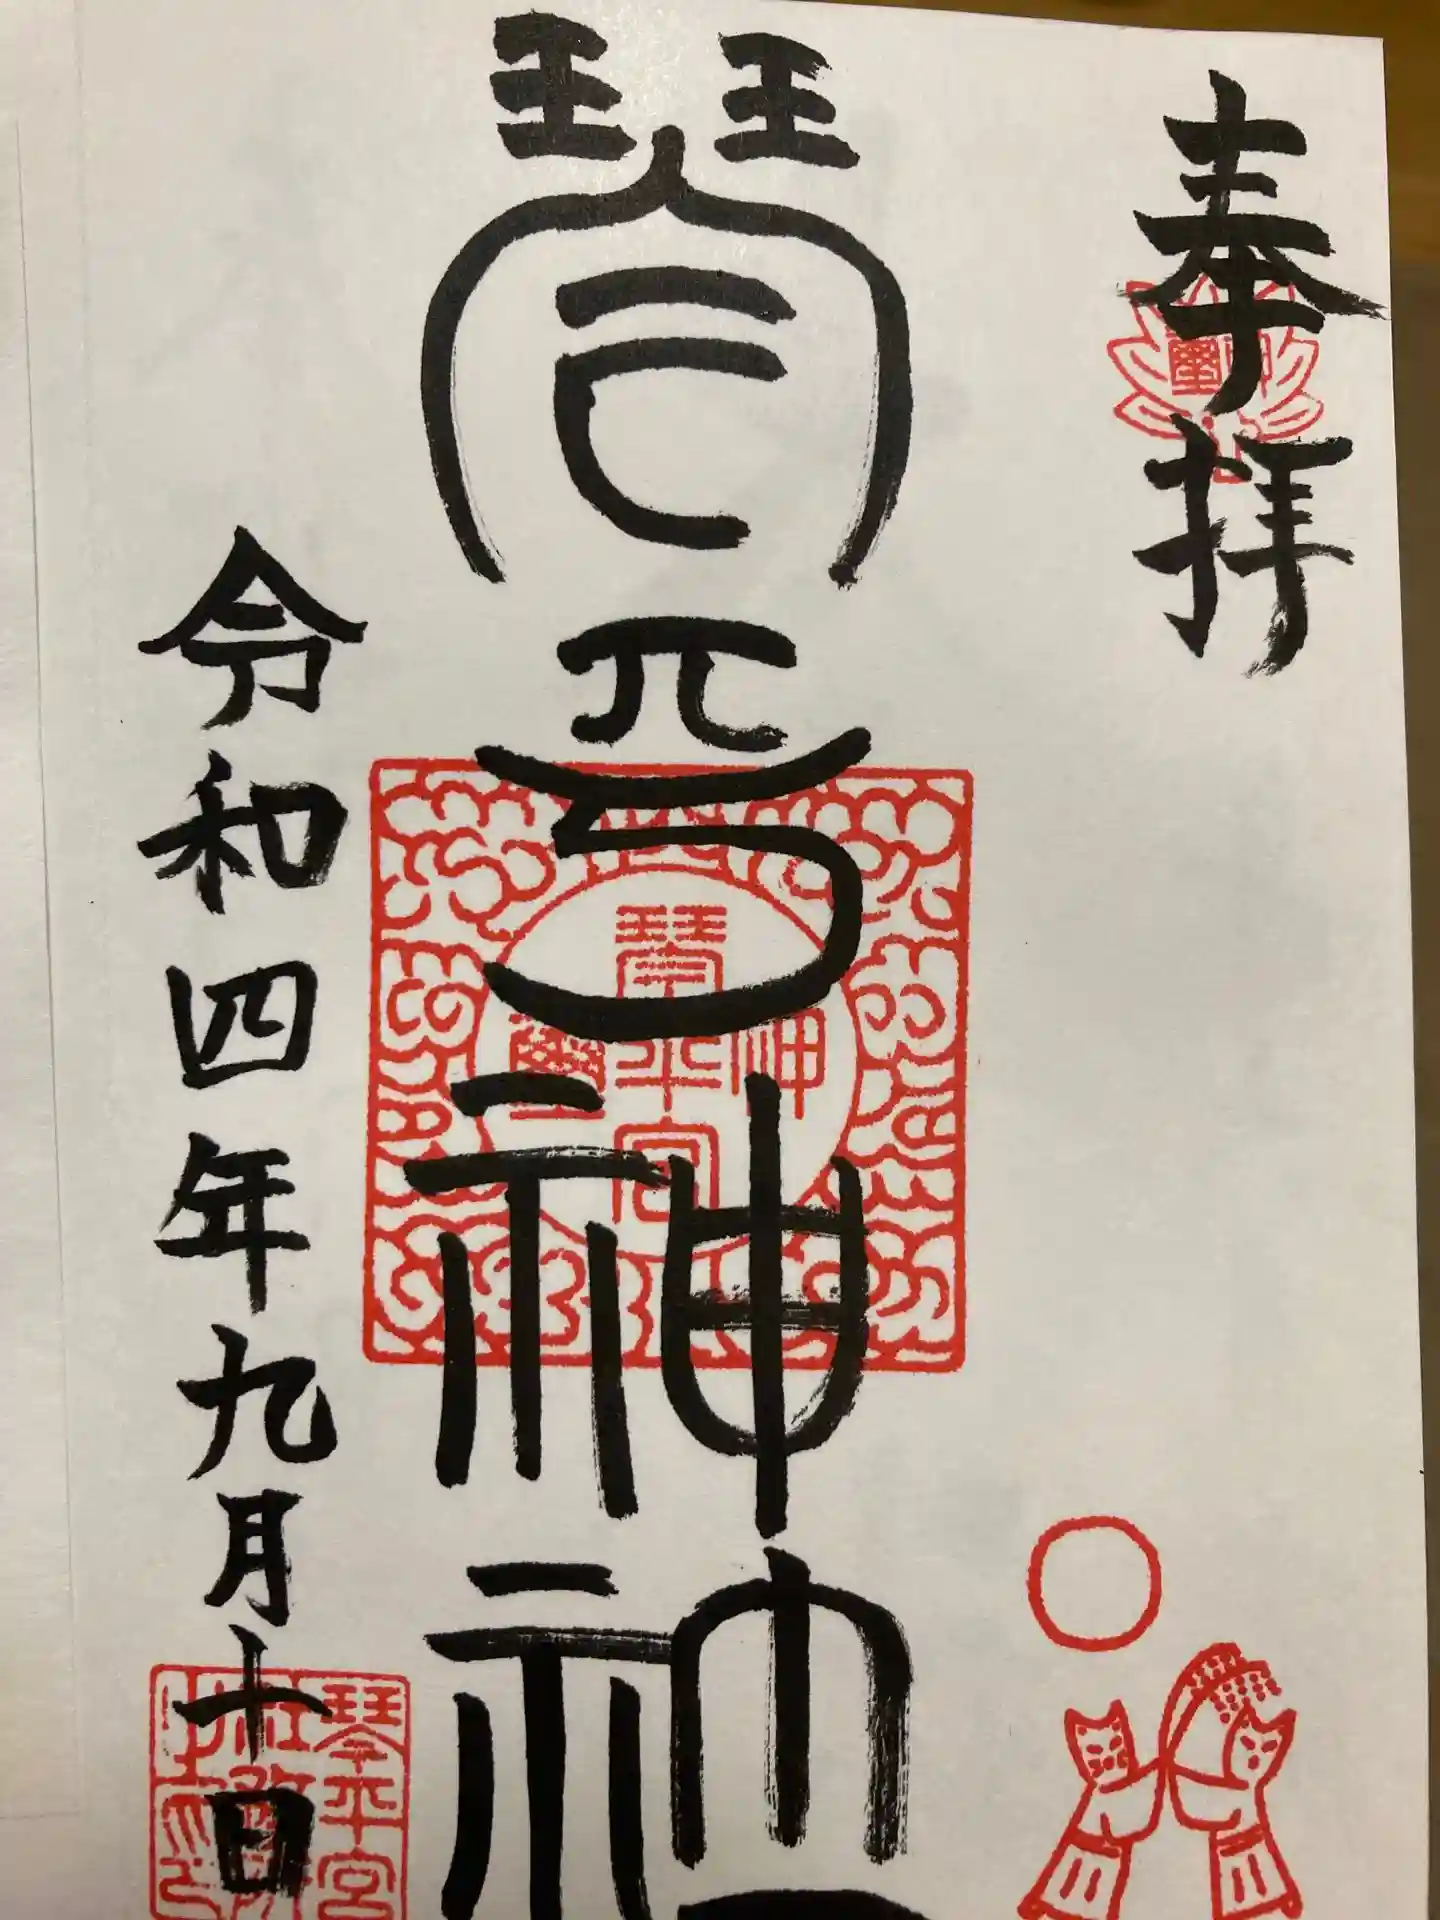 奉拝
琴平神社
令和四年九月十日
神
琴平宮
璽
琴平宮
社務所
之印